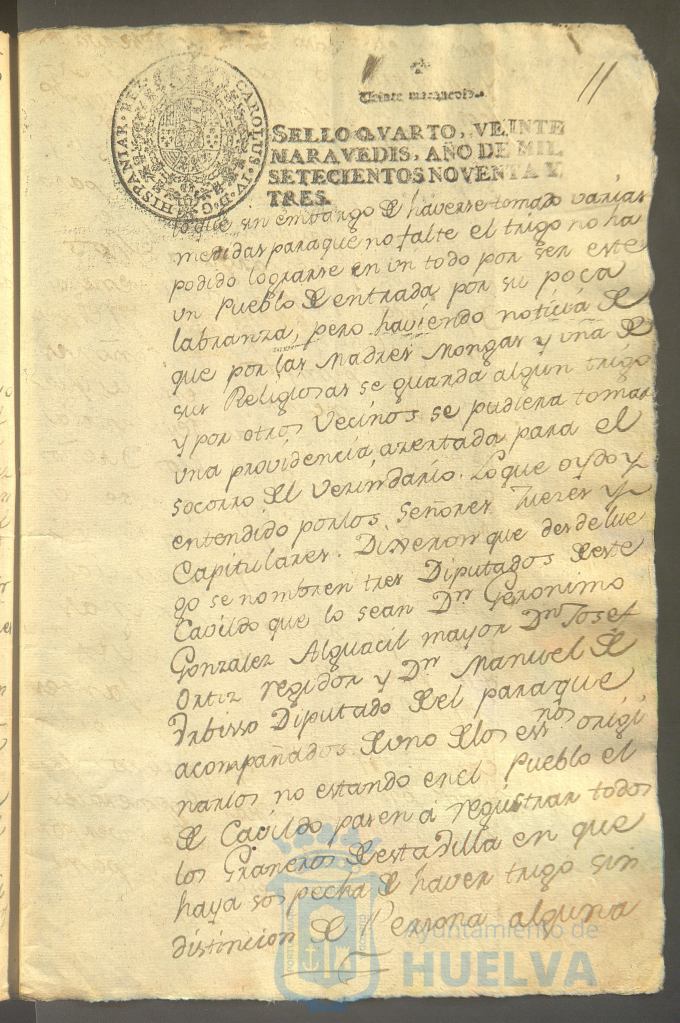 11
Veinte maravedis.
CAROLUS IV D. G. HISPANIAR. REX
SELLO QVARTO, VEINTE
MARAVEDIS, AÑO DE MIL
SETECIENTOS NOVENTA Y
TRES.
lo que sin embargo de haverse tomado varias
medidas paraque no falte el trigo no ha
podido lograrse en un todo por ser este
un Pueblo de entrada por su poca
labranza, pero haviendo noticia de
que por las Madres Mongas y una de
sus Religiosas se guarda algun trigo
y por otros Vecinos se pudiera tomar
una providencia asertada para el
socorro del Vecindario. Lo que oydo y
entendido por los Señores Jueces y
Capitulares. Dixeron que desde lue
go se nombren tres Diputados deste
Cavildo que lo sean Dn Geronimo
Gonzalez Alguacil mayor Dn Josef
Ortiz regidor y Dn Manuel de
Diputado del paraque
acompañados de uno de los essnos origi
narios no estando en el Pueblo el
de Cavildo pasen a registrar todos
los Graneros desta dilla en que
haya sospecha de haver trigo sin
distincion de Persona alguna
Ayuntamiento de
HUELVA